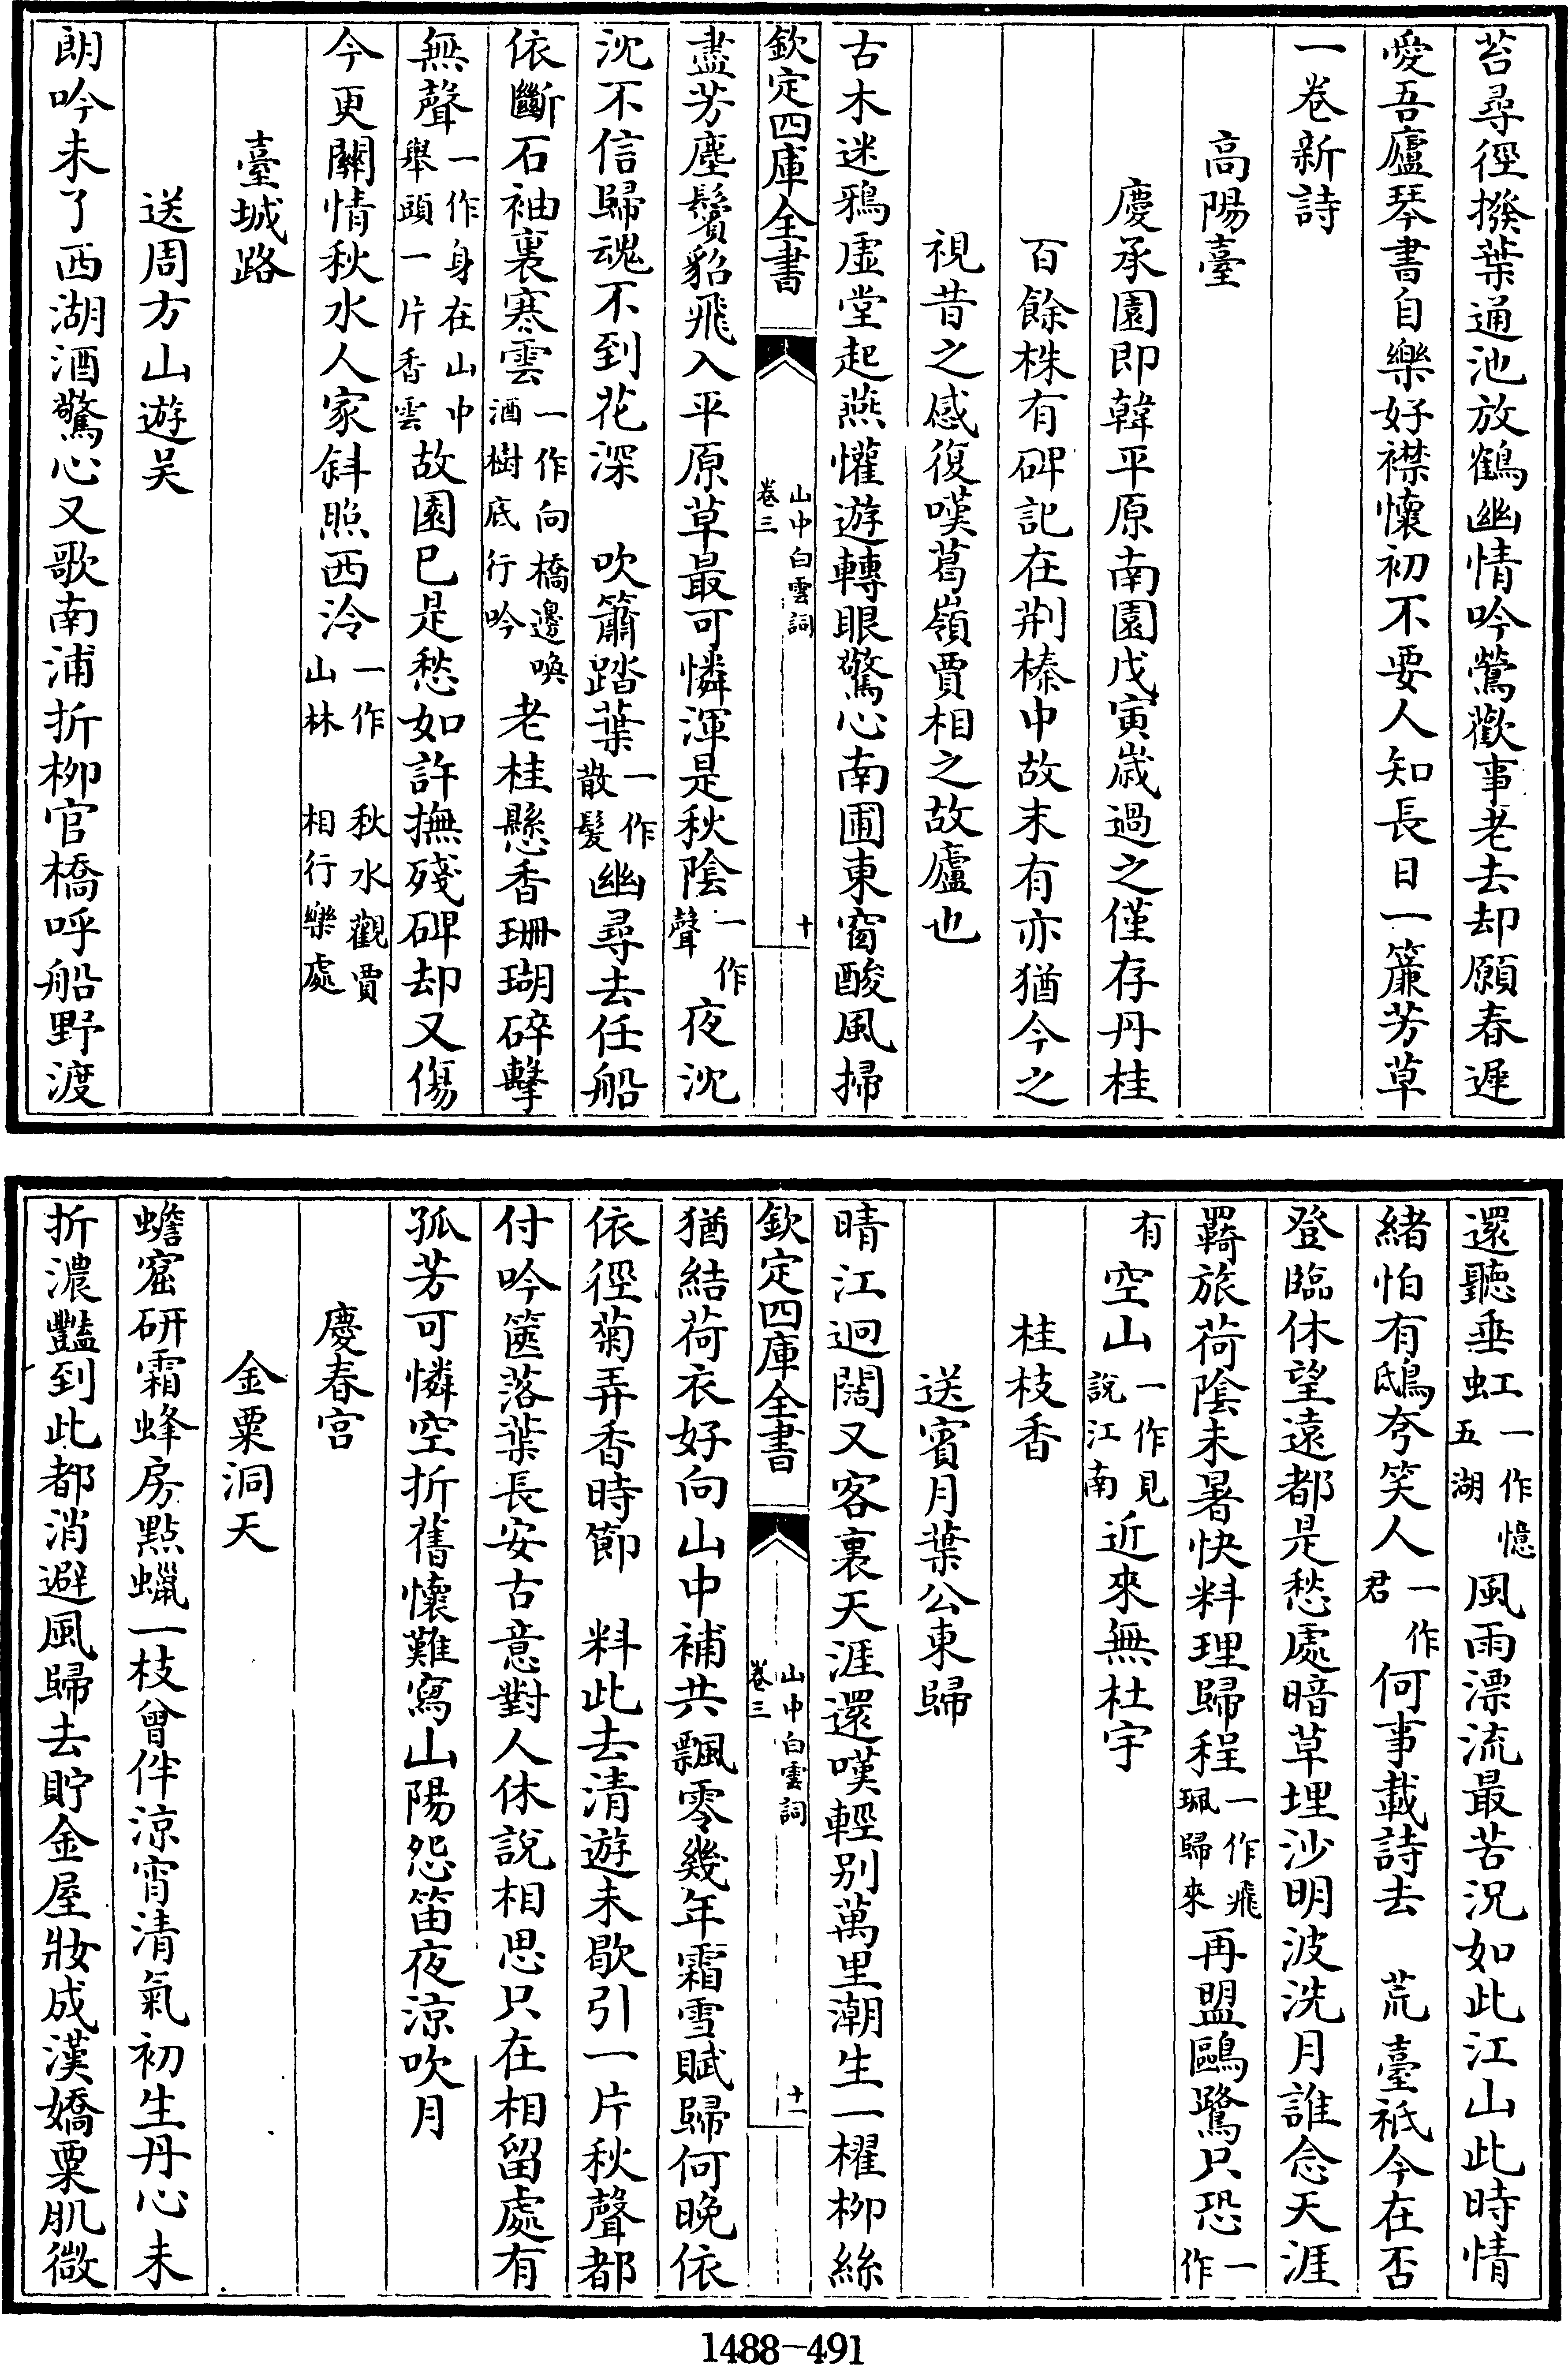 苔尋徑撥葉通池放鶴幽情吟鶯歡事老去却願春遲
愛吾廬琴書自樂好襟懷初不要人知長日一簾芳草
一卷新詩
高陽臺
慶承園即韓平原南園戊寅歲過之僅存丹桂
百餘株有碑記在荆榛中故末有亦猶今之
視昔之感復嘆葛嶺賈相之故廬也
古木迷鴉虛堂起燕懽遊轉眼驚心南圃東窗酸風掃
欽定四庫全書
山中白雲詞
卷三
十
盡芳塵鬢貂飛入平原草最可憐渾是秋陰一作聲夜沈
沈不信歸魂不到花深 吹簫踏葉一作散髪幽尋去任船
依斷石袖裏寒雲一作向橋邊喚酒樹底行吟老桂懸香珊瑚碎擊
無聲一作身在山中舉頭一片香雲故園已是愁如許撫殘碑却又傷
今更關情秋水人家斜照西泠一作山林 秋水觀賈相行樂處
臺城路
送周方山遊吴
朗吟未了西湖酒驚心又歌南浦折柳官橋呼船野渡
還聽垂虹一作憶五湖風雨漂流最苦況如此江山此時情
緒怕有鴟夸笑人一作君何事載詩去 荒臺祇今在否
登臨休望遠都是愁處暗草埋沙明波洗月誰念天涯
羈旅荷陰未暑快料理歸程一作飛珮歸來再盟鷗鷺只恐一作
有空山一作見說江南近來無杜宇
桂枝香
送賓月葉公東歸
晴江迥闊又客裏天涯還嘆輕别萬里潮生一櫂柳絲
欽定四庫全書
山中白雲詞
卷三
十一
猶結荷衣好向山中補共飄零幾年霜雪賦歸何晚依
依徑菊弄香時節 料此去清遊未歇引一片秋聲都
付吟篋落葉長安古意對人休說相思只在相留處有
孤芳可憐空折舊懷難寫山陽怨笛夜涼吹月
慶春宫
金粟洞天
蟾窟研霜蜂房點蠟一枝曾伴涼宵清氣初生丹心未
折濃豔到此都消避風歸去貯金屋妝成漢嬌粟肌微
1488-491